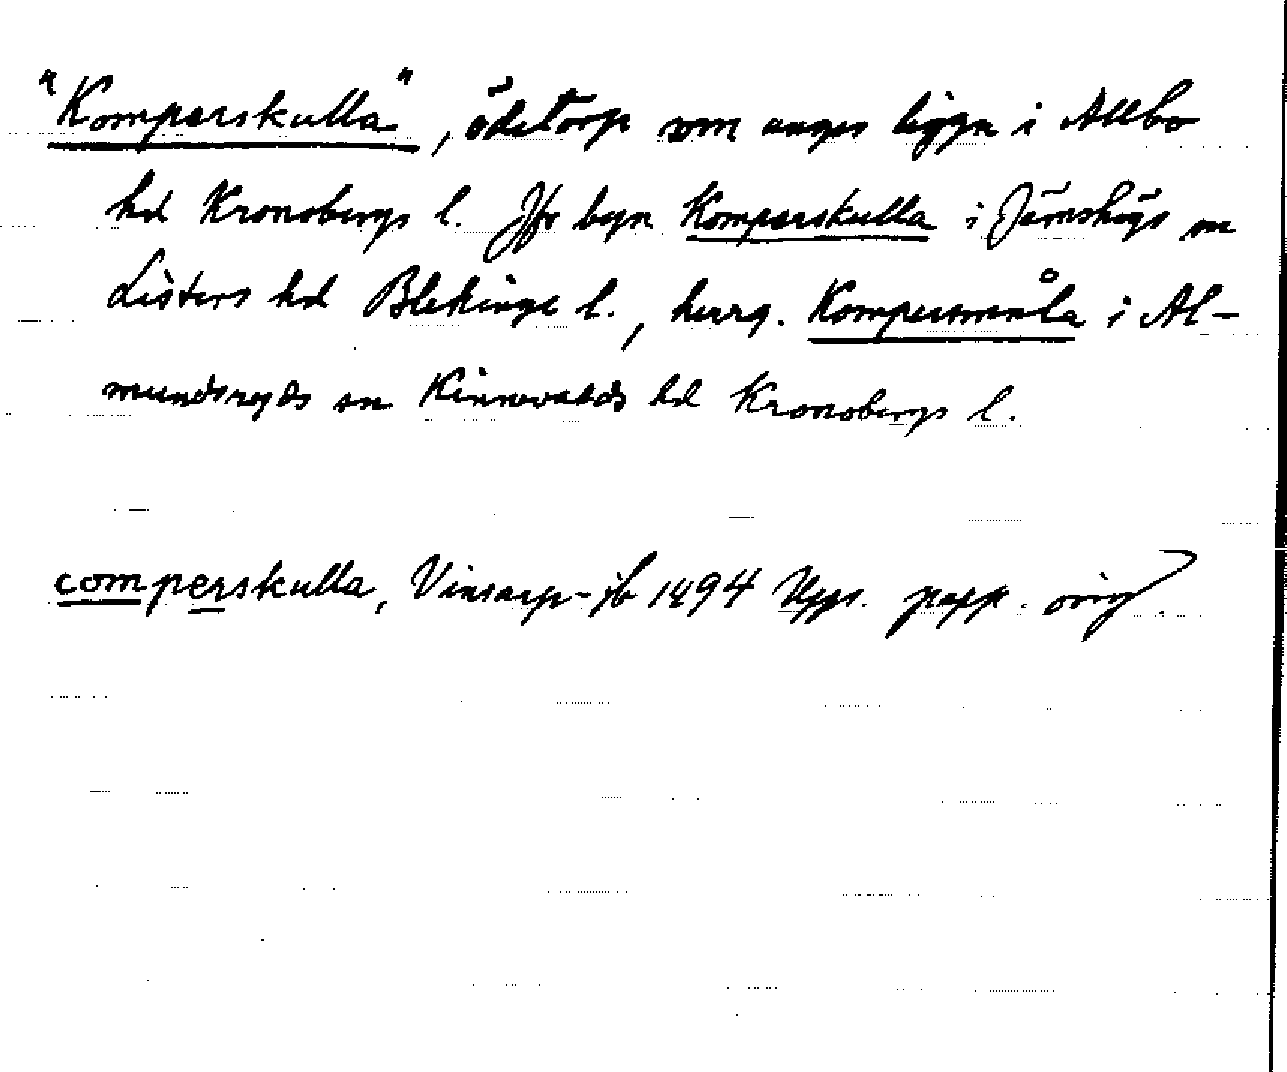 "Komperskulla", ödetorp som anges ligga i Allbo
hd Kronobergs l. Jfr byn Komperskulla i Jämshögs sn
Listers hd Blekinge l., herrg. Kompersmåla i Al-
mundsryds sn Kinnevalds hd Kronobergs l.
comperskulla, Vinsarp-jb 1494 Upps. papp. orig.